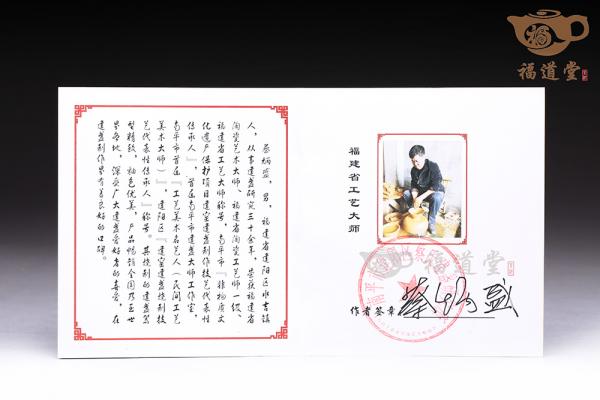 福道堂
蔡炳盛,男,福建省建阳区水吉镇
人,从事建盏研究三十余年,荣获福建省
陶瓷艺术大师、福建省陶瓷工艺师一级、
福建省工艺大师称号,南平市『非物质文
化遗产保护项目建窑建盏制作技艺代表性
传承人』,首届南平市建盏大师工作室,
南平市首届『工艺美术名艺人(民间工艺
美术大师)』,建阳区『建窑建盏烧制技
艺代表性传承人』称号。其烧制的建盏器
型精致,釉色优美,产品畅销全国乃至世
界各地,深受广大建盏爱好者的喜爱,在
建盏制作界有着良好的口碑。
福建省工艺大师
福道堂
作者签章
蔡炳盛